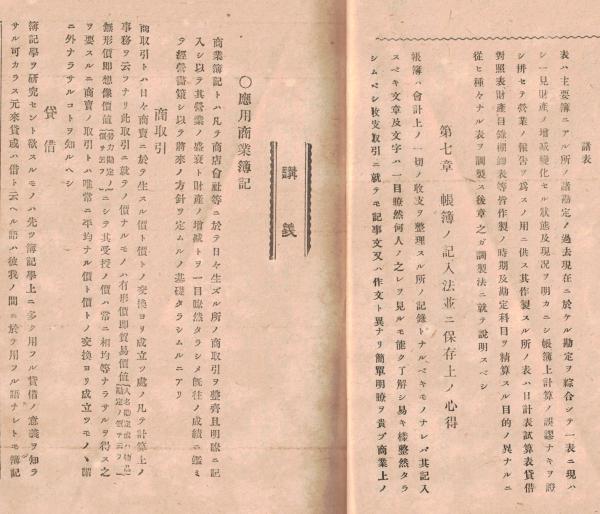 諸表
表ハ主要簿ニアル所ノ諸勘定ノ過去現在ニ於ケル勘定ヲ綜合シテ一表ニ現ハ
シ一見財産ノ増減變化セル狀態及現況ヲ明カニシ帳簿上計算ノ誤謬ナキヲ證
シ併セテ營業ノ報告ヲ爲スノ用ニ供ス其作製スル所ノ表ハ日計表試算表貸借
對照表財産目錄棚卸表等皆作製ノ時期及勘定科目ヲ精算スル目的ノ異ナルニ
從ヒ種々ナル表ヲ調製ス後章之ガ調製法ニ就テ説明スベシ
第七章 帳簿ノ記入法並ニ保存上ノ心得
帳簿ハ會計上ノ一切ノ收支ヲ整理スル所ノ記錄トナルベキモノナレバ其記入
スベキ文章及文字ハ一目瞭然何人ノ之レヲ見ルモ能ク了解シ易キ樣整然タラ
シムベシ收支取引ニ就テモ記事文又ハ作文ト異ナリ簡單明瞭ヲ貴ブ商業上ノ
講義
〇應用商業簿記
商業簿記トハ凡テ商店會社等ニ於テ日々生ズル所ノ商取引ヲ整齊且明瞭ニ記
入シ以テ其營業ノ盛衰ト財產ノ增減トヲ一目瞭然タラシメ旣往ノ成績ニ鑑ミ
テ經營畵策シ以テ將來ノ方針ヲ定ムルノ基礎タラシムルニアリ
商取引
商取引トハ日々商賣ニ於テ生スル價ト價トノ交換ヨリ成立ツ處ノ凡テ計算上ノ
事務ヲ云フナリ此取引ニ就テノ價ナルモノハ有形價卽貿易價値
無形價卽想像價値ニシテ其受授ノ價ハ常ニ相均等ナラサルヲ得ス之
ヲ要スルニ商賣ノ取引トハ唯常ニ平均ナル價ト價トノ交換ヨリ成立ツモノヽ謂
ニ外ナラサルコトヲ知ルヘシ
貸借
簿記學ヲ硏究セント欲スルモノハ先ツ簿記學上ニ多ク用フル貸借ノ意義ヲ知ラ
サル可カラス元來貸或ハ借ト云ヘル語ハ彼我ノ間ニ於テ用フル語ナレトモ簿記